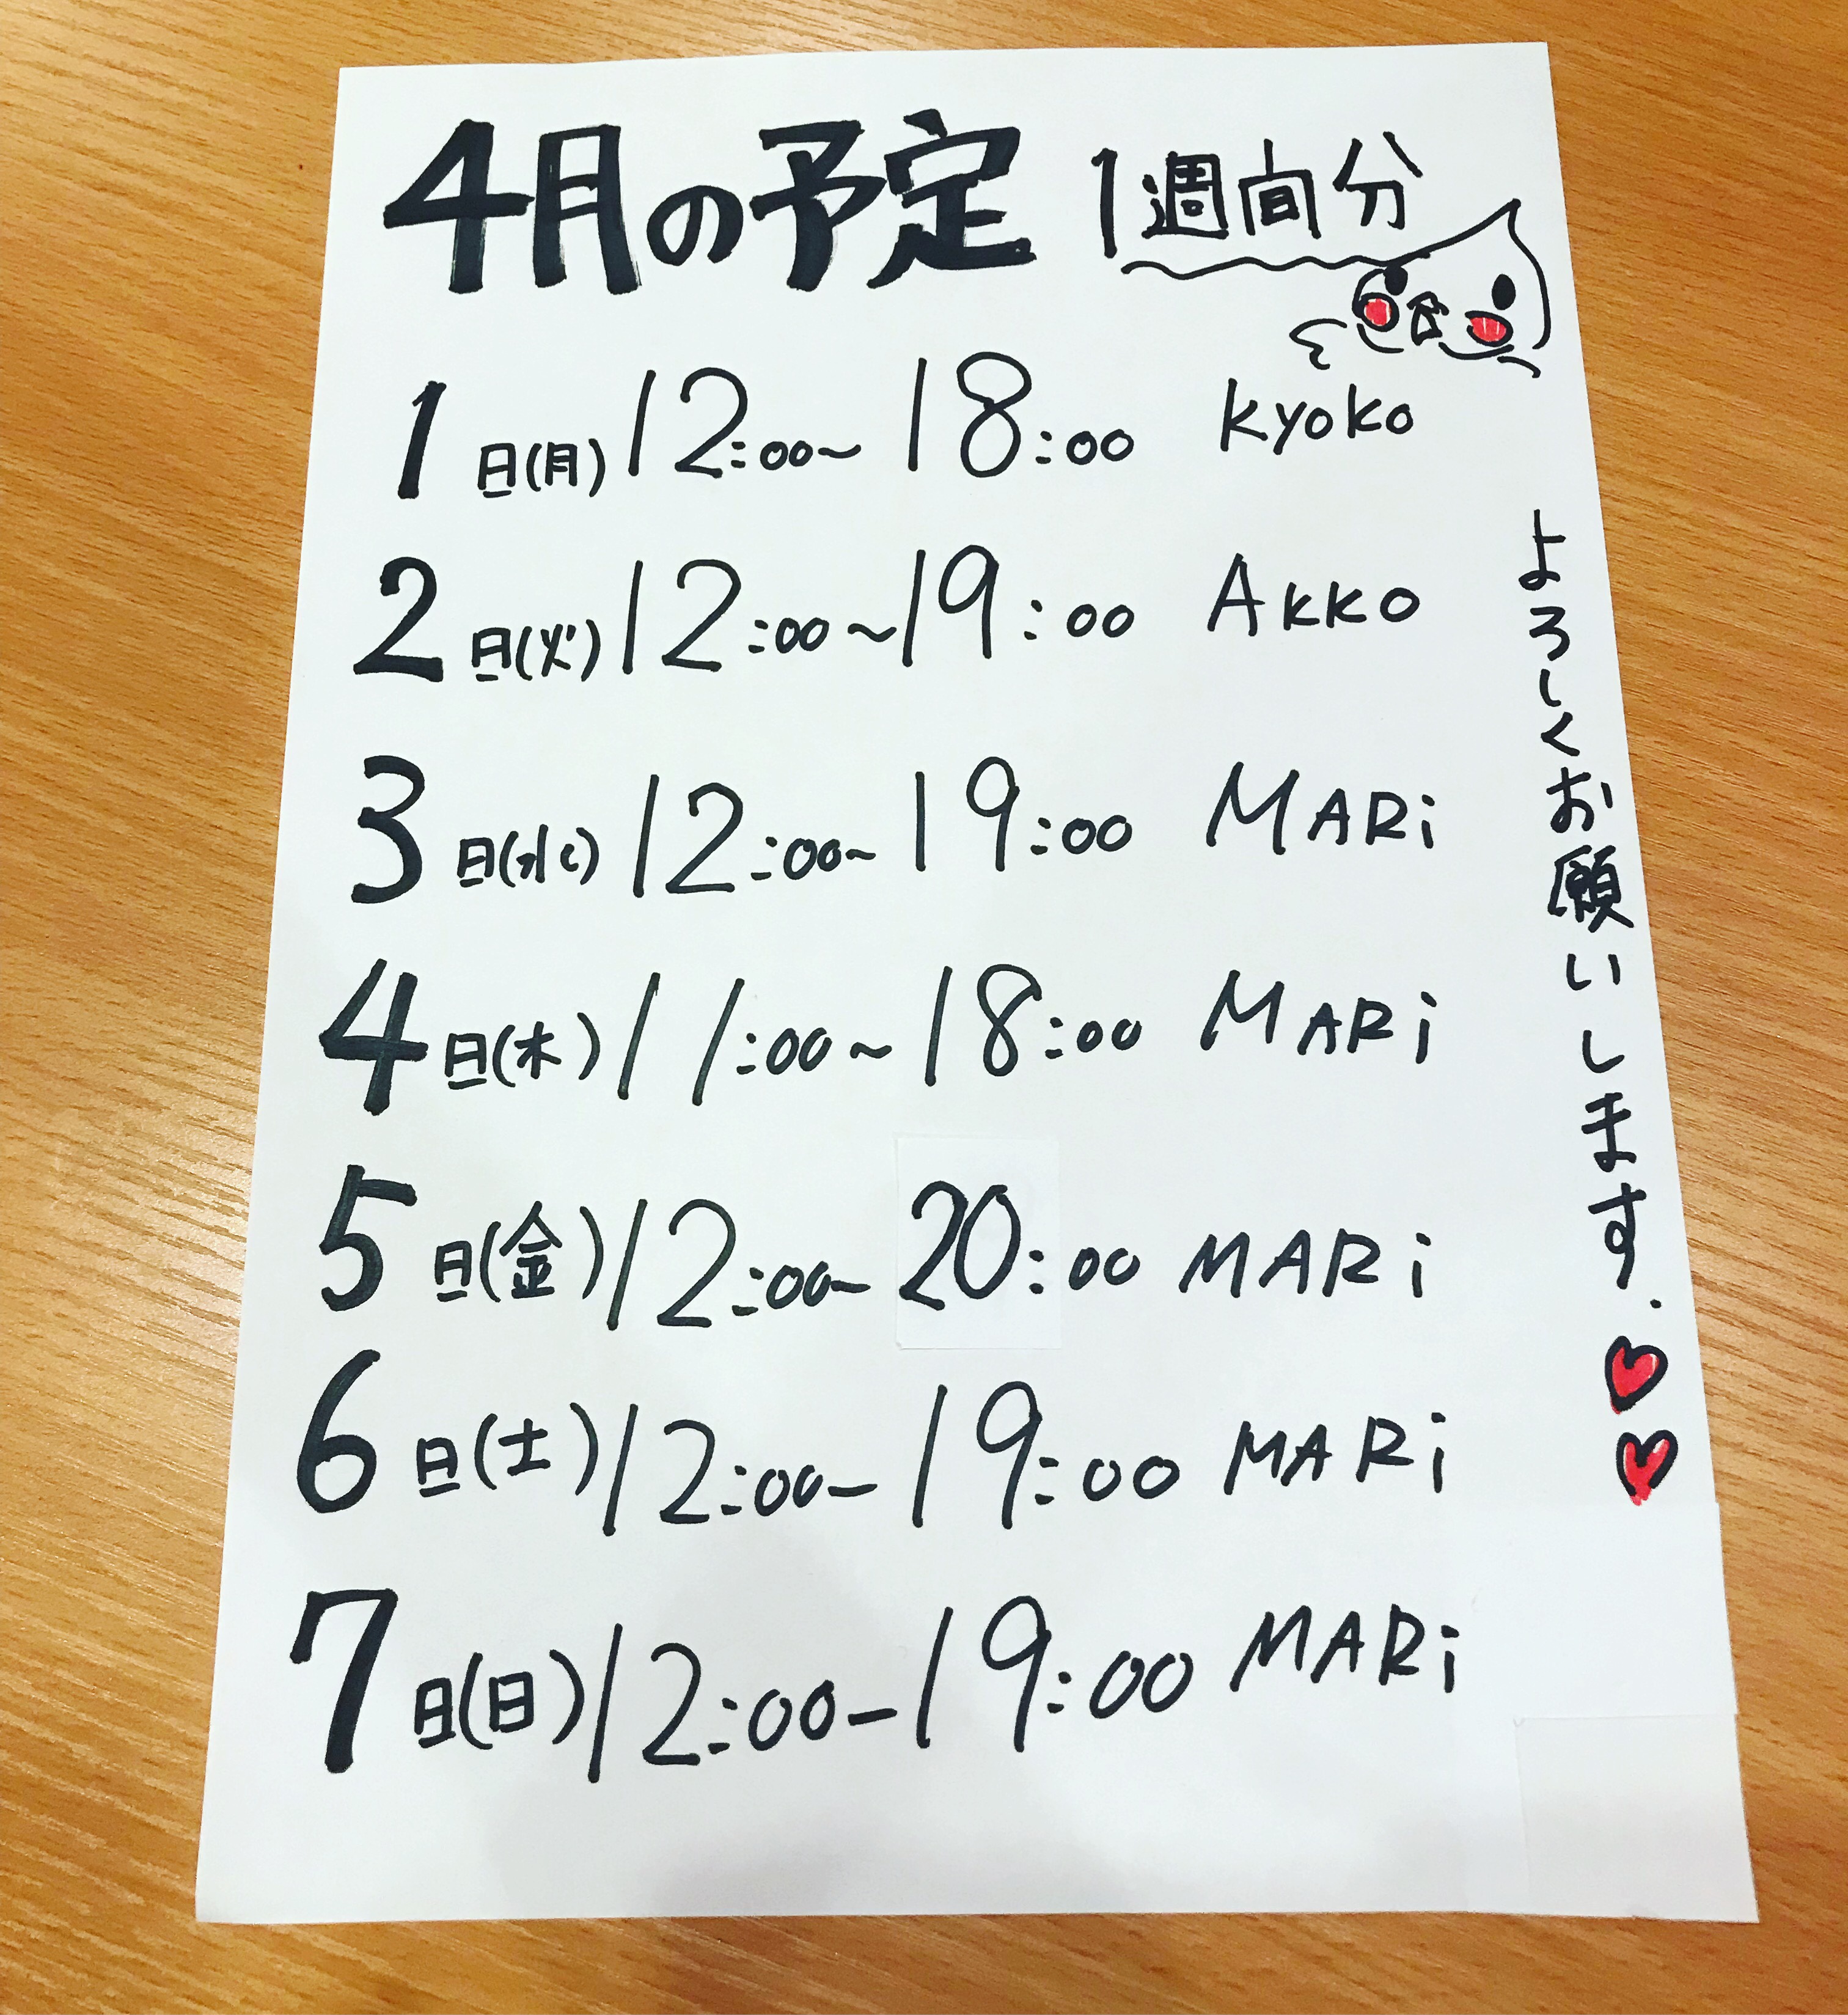 4月の予定 1週間分
1日(月) 12:00~18:00 kyoko
2日(火) 12:00~19:00 AKKO
3日(水) 12:00~19:00 MARi
4日(木) 11:00~18:00 MARi
5日(金) 12:00~20:00 MARi
6日(土) 12:00-19:00 MARi
7日(日) 12:00-19:00 MARi
よろしくお願いします.